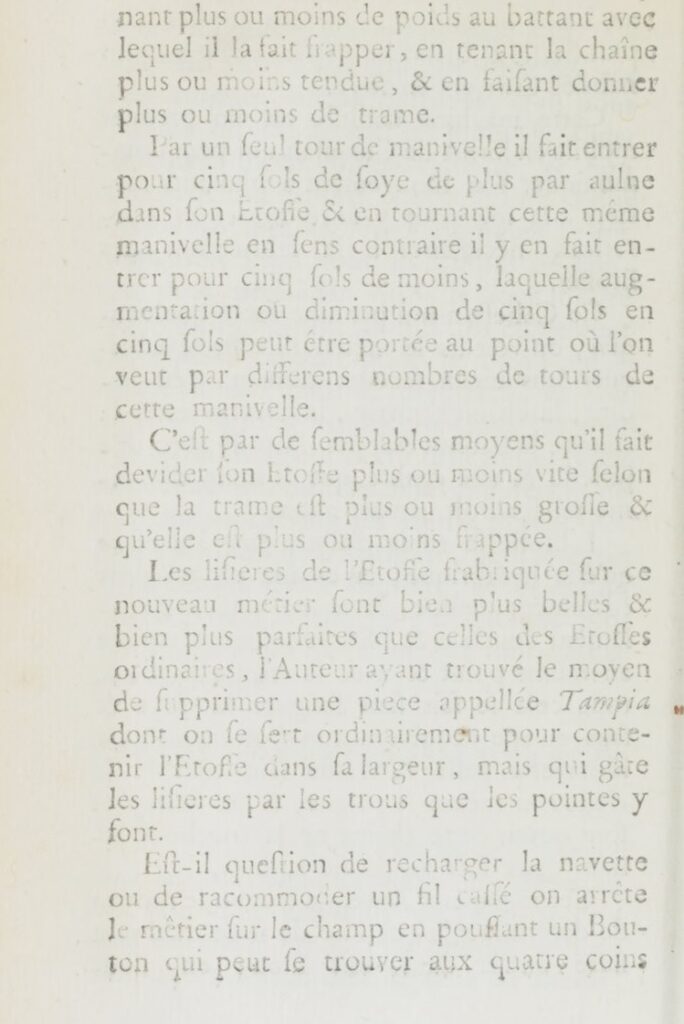 nant plus ou moins de poids au battant avec
lequel il la fait frapper, en tenant la chaîne
plus ou moins tendue, & en faiſant donner
plus ou moins de trame.
Par un ſeul tour de manivelle il fait entrer
pour cinq ſols de ſoye de plus par aulne
dans ſon Etoffe, & en tournant cette méme
manivelle en ſens contraire il y en fait en-
trer pour cinq ſols de moins, laquelle aug-
mentation ou diminution de cinq ſols en
cinq ſols peut étre portée au point où l'on
veut par differens nombres de tours de
cette manivelle.
C'eſt par de ſemblables moyens qu'il fait
devider ſon Etoffe plus ou moins vite ſelon
que la trame eſt plus ou moins groſſe &
qu'elle eſt plus ou moins frappée.
Les liſieres de l'Etoffe frabriquée ſur ce
nouveau métier ſont bien plus belles &
bien plus parfaites que celles des Etoffes
ordinaires, l'Auteur ayant trouvé le moyen
de ſupprimer une piece appellée Tampia
dont on ſe ſert ordinairement pour conte-
nir l'Etoffe dans ſa largeur, mais qui gâte
les liſieres par les trous que les pointes y
font.
Eſt-il queſtion de recharger la navette
ou de racommoder un fil caſſé on arrête
le mêtier ſur le champ en pouſſant un Bou-
ton qui peut ſe trouver aux quatre coins